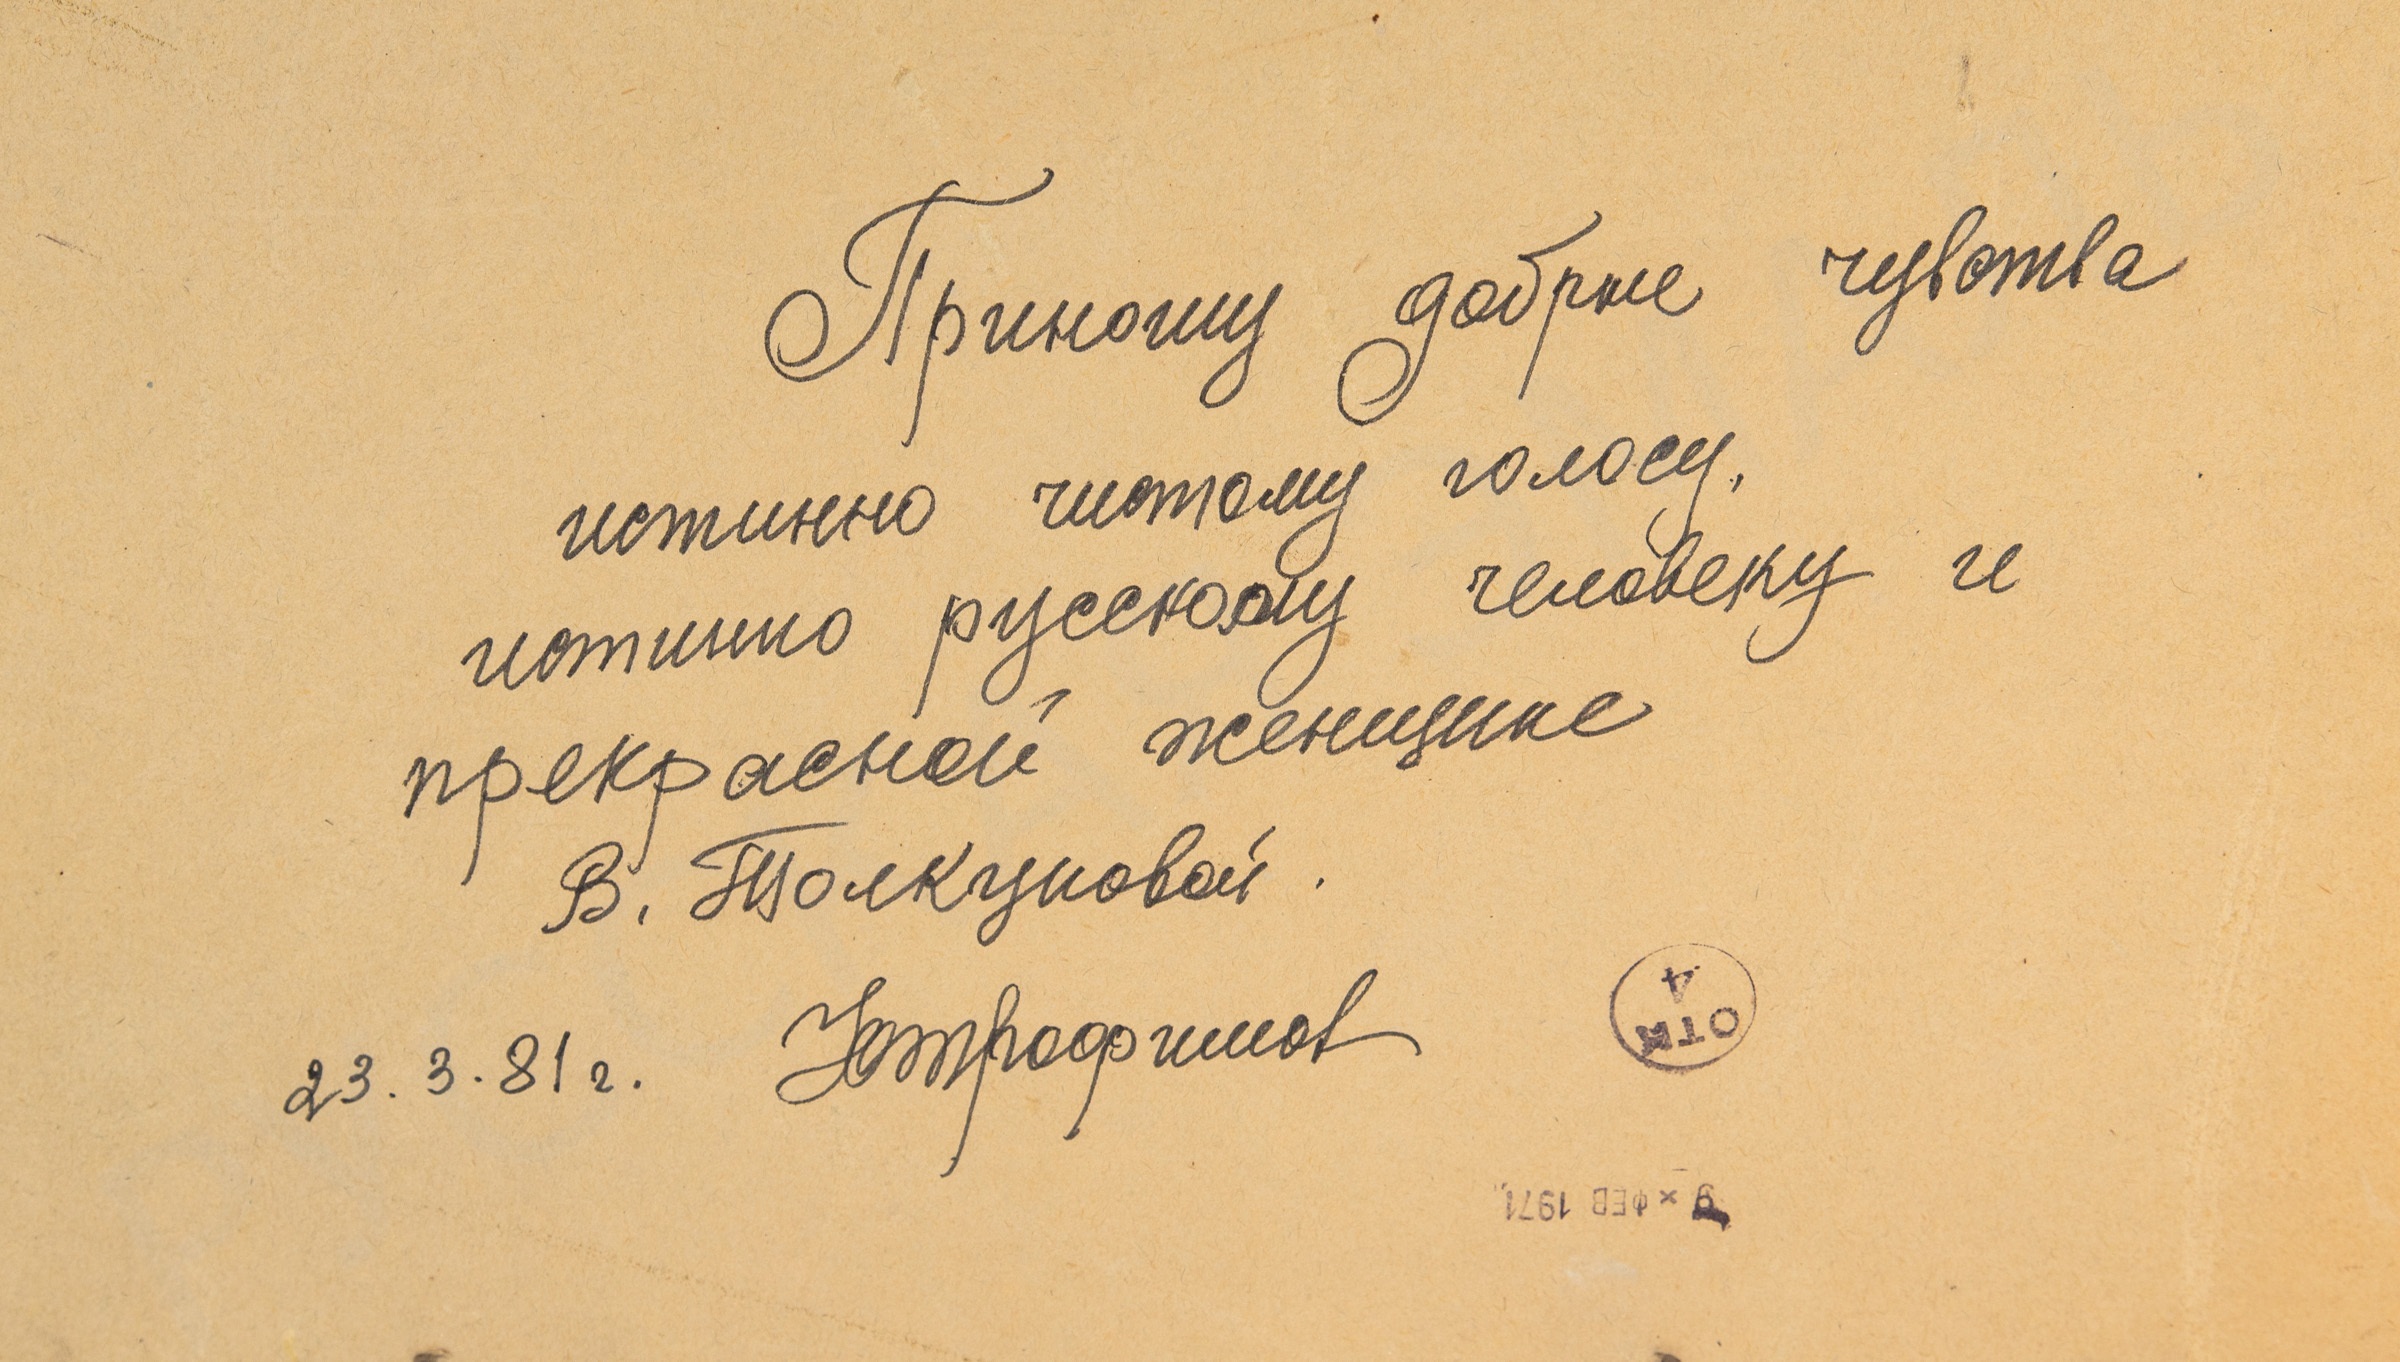 Приношу добрые чувства
истинно чистому голосу,
истинно русскому человеку и
прекрасной женщине
В. Толкуновой.
23.3.81 г.
ОТК
4
9 × ФЕВ 1971